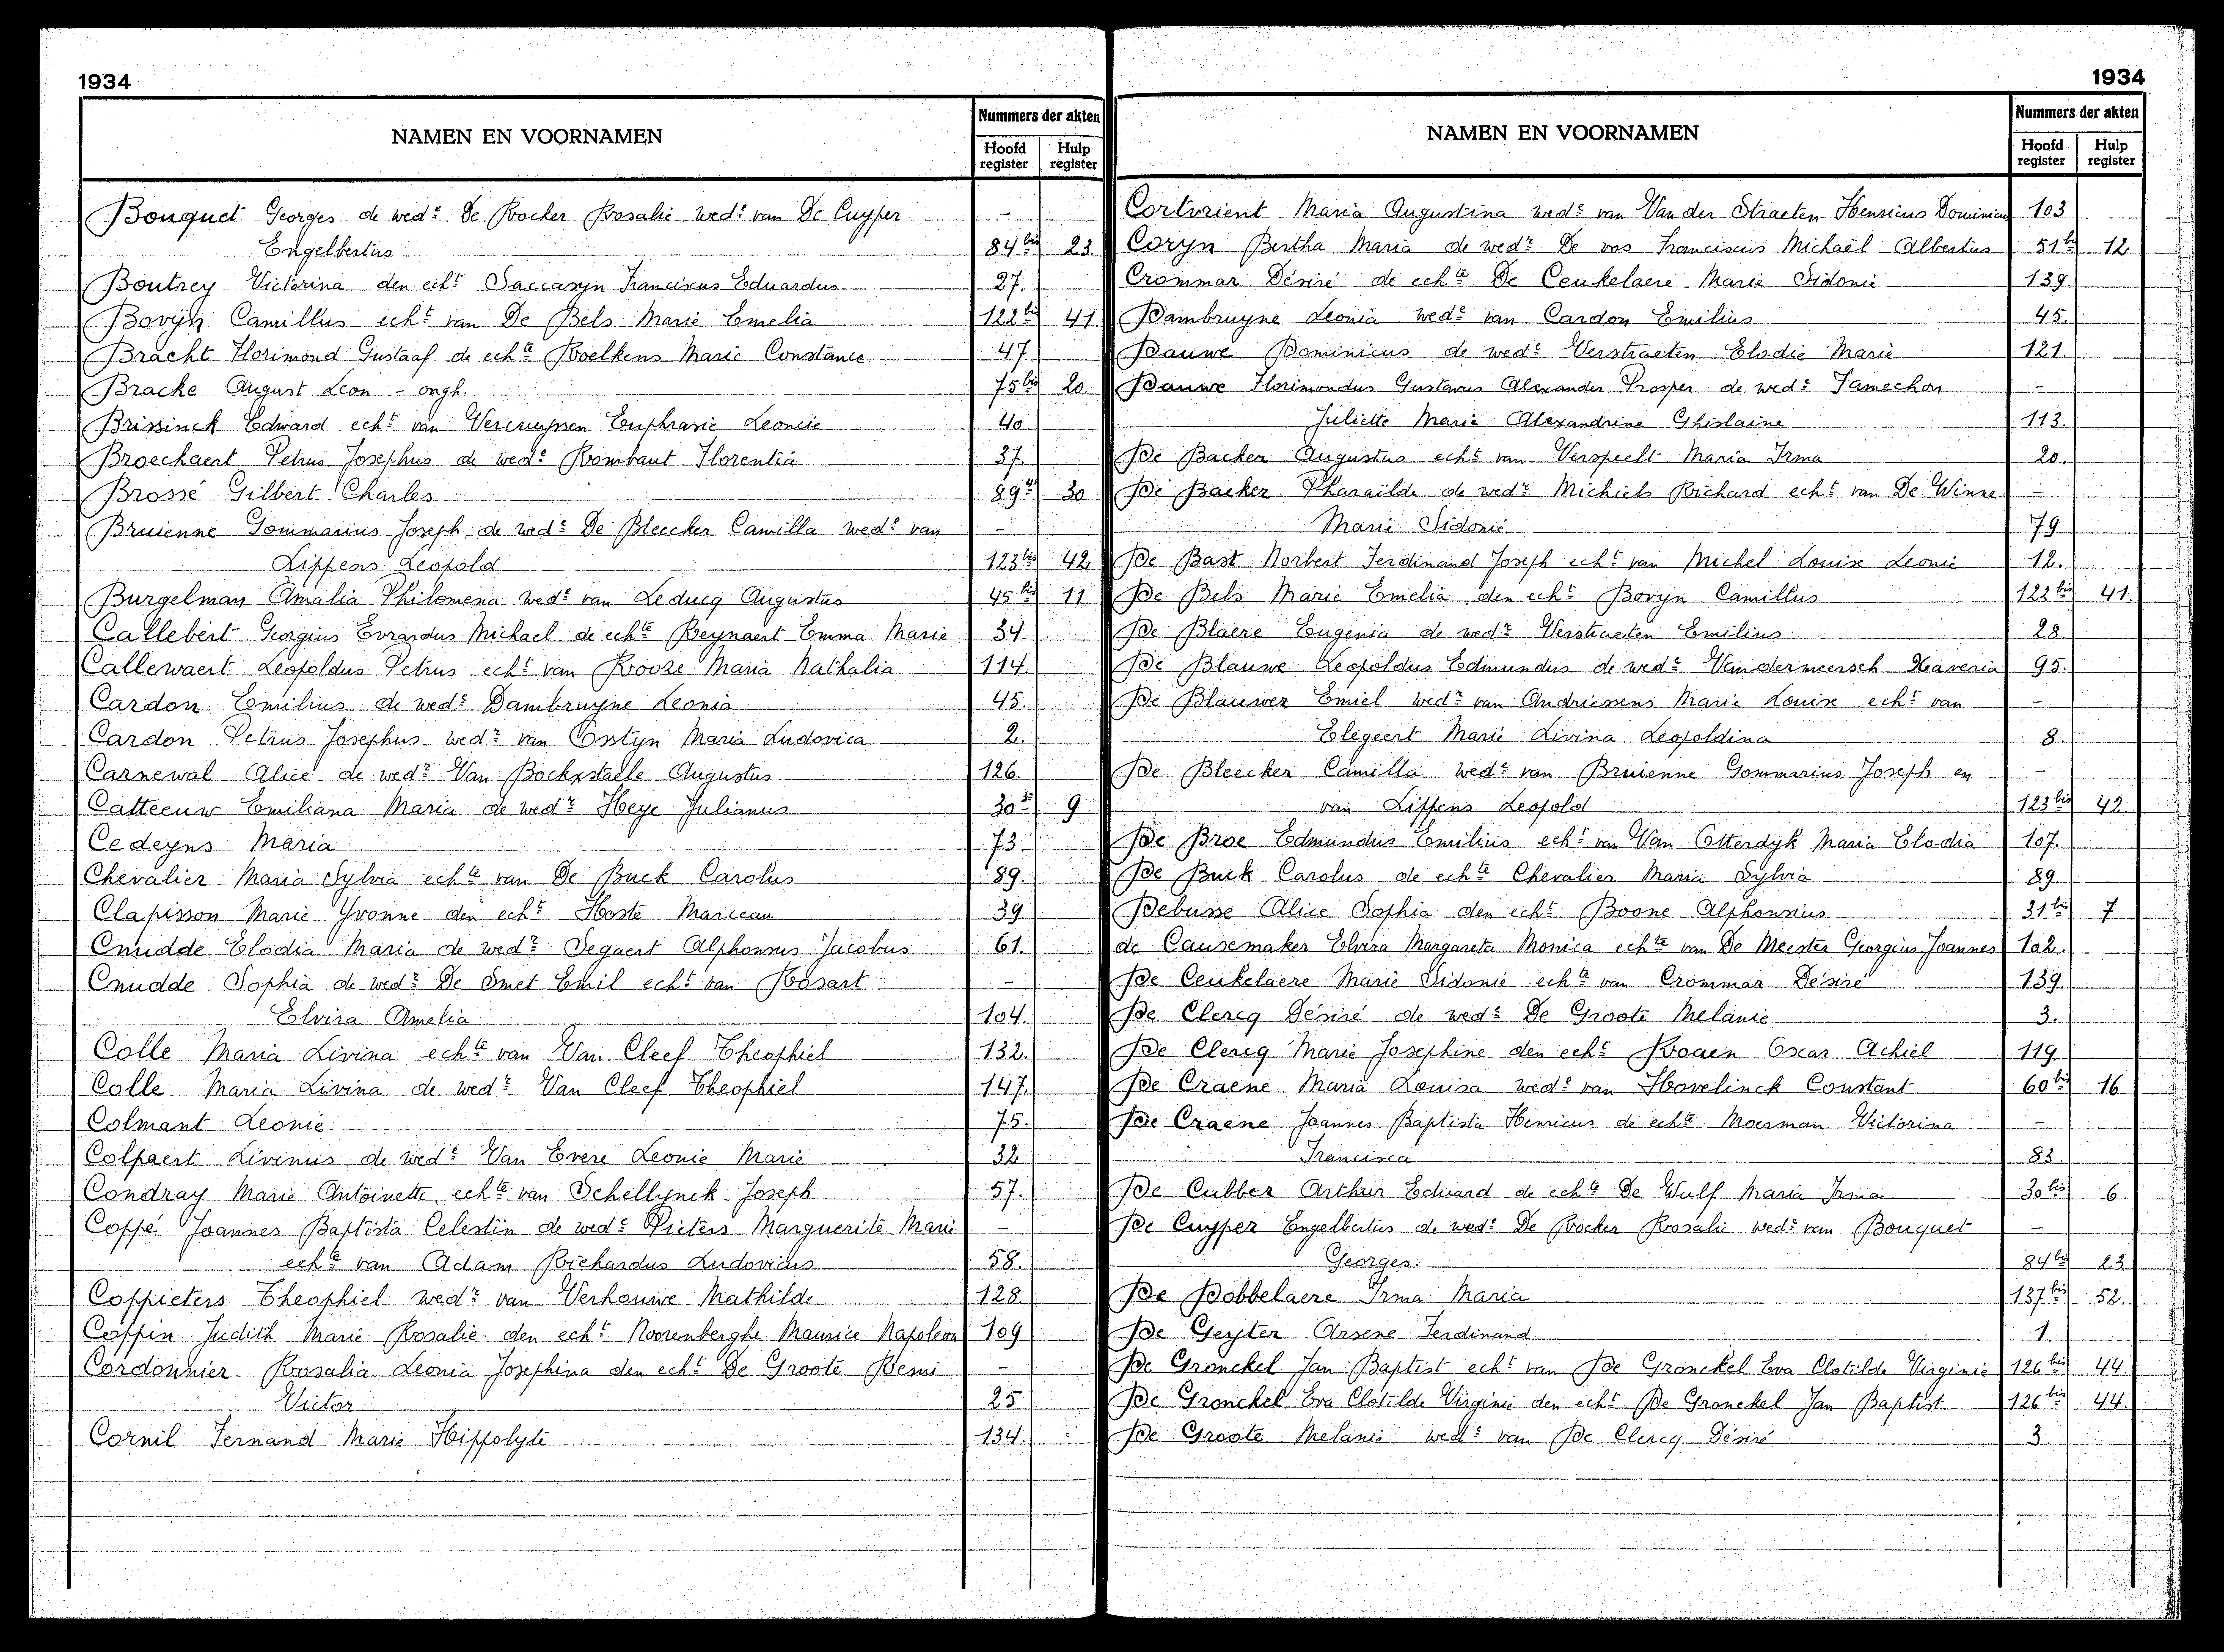 1934
NAMEN EN VOORNAMEN
Nummers der akten
Hoofd register
Hulp register
Bouquet Georges de wedᵉ De Rocker Rosalie wedᵉ van De Cuyper -
Engelbertus 84bis 23
Boutrey Victorina den echᵗ Saccasyn Franciscus Eduardus 27.
Bovÿn Camillus echᵗ van De Bels Marie Emelia 122bis 41
Bracht Florimond Gustaaf de echᵗᵉ Roelkens Marie Constance 47
Bracke August Leon - ongh. 75bis 20
Brissinck Edward echᵗ van Vercruyssen Euphrasie Leoncie 40
Broeckaert Petrus Josephus de wedᵉ Rombaut Florentia 37.
Brossé Gilbert Charles 89 30
Bruienne Gommarius Joseph de wedᵉ De Bleecker Camilla wedᵉ van -
Lippens Leopold 123bis 42
Burgelman Amalia Philomena wedᵉ van Leducq Augustus 45bis 11
Callebert Georgius Evrardus Michael de echᵗᵉ Reynaert Emma Marie 34.
Callewaert Leopoldus Petrus echᵗ van Rooze Maria Nathalia 114.
Cardon Emilius de wedᵉ Dambruyne Leonia 45.
Cardon Petrus Josephus wedʳ van Osstyn Maria Ludovica 2.
Carnewal Alice de wedʳ Van Bockxstaele Augustus 126.
Catteeuw Emiliana Maria de wedʳ Heye Julianus 30 9
Cedeyns Maria 73.
Chevalier Maria Sylvia echᵗᵉ van De Buck Carolus 89.
Clapisson Marie Yvonne den echᵗ Hoste Marceau 39
Cnudde Elodia Maria de wedʳ Segaert Alphonsus Jacobus 61.
Cnudde Sophia de wedʳ De Smet Emil echᵗ van Rosart -
Elvira Amelia 104.
Colle Maria Livina echᵗᵉ van Van Cleef Theophiel 132.
Colle Maria Livina de wedʳ Van Cleef Theophiel 147.
Colmant Leonie 75.
Colpaert Livinus de wedᵉ Van Evere Leonie Marie 32
Condray Marie Antoinette echᵗᵉ van Schellynck Joseph 57.
Coppé Joannes Baptista Celestin de wedᵉ Pieters Marguerite Marie -
echᵗᵉ van Adam Richardus Ludovicus 58.
Coppieters Theophiel wedʳ van Verhouwe Mathilde 128
Coppin Judith Marie Rosalie den echᵗ Noorenberghe Maurice Napoleon 109
Cordonnier Rosalia Leonia Josephina den echᵗ De Groote Remi -
Victor 25
Cornil Fernand Marie Hippolyte 134.
1934
NAMEN EN VOORNAMEN
Nummers der akten
Hoofd register
Hulp register
Cortvrient Maria Augustina wedᵉ van Van der Straeten Henricus Dominicus 103
Coryn Bertha Maria de wedʳ De vos Franciscus Michaël Albertus 51bis 12
Crommar Désiré de echᵗᵉ De Ceukelaere Marie Sidonie 139.
Dambruyne Leonia wedᵉ van Cardon Emilius 45.
Dauwe Dominicus de wedᵉ Verstraeten Elodie Marie 121.
Dauwe Florimondus Gustavus Alexander Prosper de wedᵉ Jamechon -
Juliette Marie Alexandrine Ghislaine 113.
De Backer Augustus echᵗ van Verspeelt Maria Irma 20.
De Backer Pharaïlde de wedʳ Michiels Richard echᵗ van De Winne -
Marie Sidonie 79
De Bast Norbert Ferdinand Joseph echᵗ van Michel Louise Leonie 12.
De Bels Marie Emelia den echᵗ Bovyn Camillus 122bis 41.
De Blaere Eugenia de wedʳ Verstraeten Emilius 28
De Blauwe Leopoldus Edmundus de wedᵉ Vandermeersch Xaveria 95.
De Blauwer Emiel wedʳ van Andriessens Marie Louise echᵗ van -
Elegeert Marie Livina Leopoldina 8
De Bleecker Camilla wedʳ van Bruienne Gommarius Joseph en -
van Lippens Leopold 123bis 42
De Broe Edmundus Emilius echᵗ van Van Otterdyk Maria Elodia 107.
De Buck Carolus de echᵗᵉ Chevalier Maria Sylvia 89
Debusse Alice Sophia den echᵗ Boone Alphonsius 31bis 7
de Causemaker Elvira Margareta Monica echᵗᵉ van De Meester Georgius Joannes 102.
De Ceukelaere Marie Sidonie echᵗᵉ van Crommar Désiré 139
De Clercq Désiré de wedᵉ De Groote Melanie 3.
De Clercq Marie Josephine den echᵗ Roaen Oscar Achiel 119.
De Craene Maria Louisa wedᵉ van Hovelinck Constant 60bis 16
De Craene Joannes Baptista Henricus de echᵗᵉ Moerman Victorina -
Francisca 83.
De Cubber Arthur Edward de echᵗᵉ De Wulf Maria Irma 30bis 6
De Cuyper Engelbertus de wedᵉ De Rocker Rosalie wedʳ van Bouquet -
Georges. 84bis 23
De Dobbelaere Irma Maria 137bis 52.
De Geyter Arsene Ferdinand 1.
De Gronckel Jan Baptist echᵗ van De Gronckel Eva Clotilde Virginie 126bis 44
De Gronckel Eva Clotilde Virginie den echᵗ De Gronckel Jan Baptist 126bis 44.
De Groote Melanie wedᵉ van De Clercq Désiré 3.